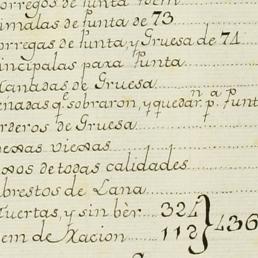 orregos de punta idem
imalas de punta de 73
orregas de punta, y Gruesa de 74
incipalas para Punta
anadas de Gruesa
enadas q.e sobraron, y quedan p.a Punt
rderos de Gruesa
vexas viexas
xos de todas calidades
brestos de Lana
uertas, y sin bèr 324
em de Nacion 112 } 436